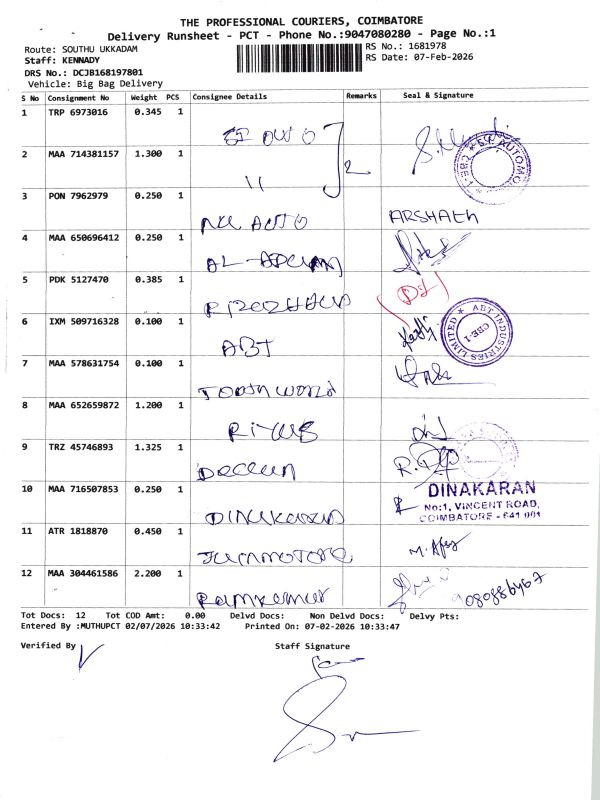 THE PROFESSIONAL COURIERS, COIMBATORE
Delivery Runsheet - PCT - Phone No.:9047080280 - Page No.:1
Route: SOUTHU UKKADAM
RS No.: 1681978
Staff: KENNADY
RS Date: 07-Feb-2026
DRS No.: DCJB168197801
Vehicle: Big Bag Delivery
S No Consignment No Weight PCS Consignee Details Remarks Seal & Signature
1 TRP 6973016 0.345 1
2 MAA 714381157 1.300 1 11 2
3 PON 7962979 0.250 1 AUTO ARSHATH
4 MAA 650696412 0.250 1 AL-
5 PDK 5127470 0.385 1
6 IXM 509716328 0.100 1 ABT
ABT INDUSTRIES LIMITED ★ CBE-1
7 MAA 578631754 0.100 1 WORLD
8 MAA 652659872 1.200 1
9 TRZ 45746893 1.325 1 Deccun
10 MAA 716507853 0.250 1 DINAKARAN
DINAKARAN
No:1, VINCENT ROAD,
COIMBATORE - 641 001
11 ATR 1818870 0.450 1
12 MAA 304461586 2.200 1 Ramkumar
Tot Docs: 12 Tot COD Amt: 0.00 Delvd Docs: Non Delvd Docs: Delvy Pts:
Entered By :MUTHUPCT 02/07/2026 10:33:42 Printed On: 07-02-2026 10:33:47
Verified By
Staff Signature